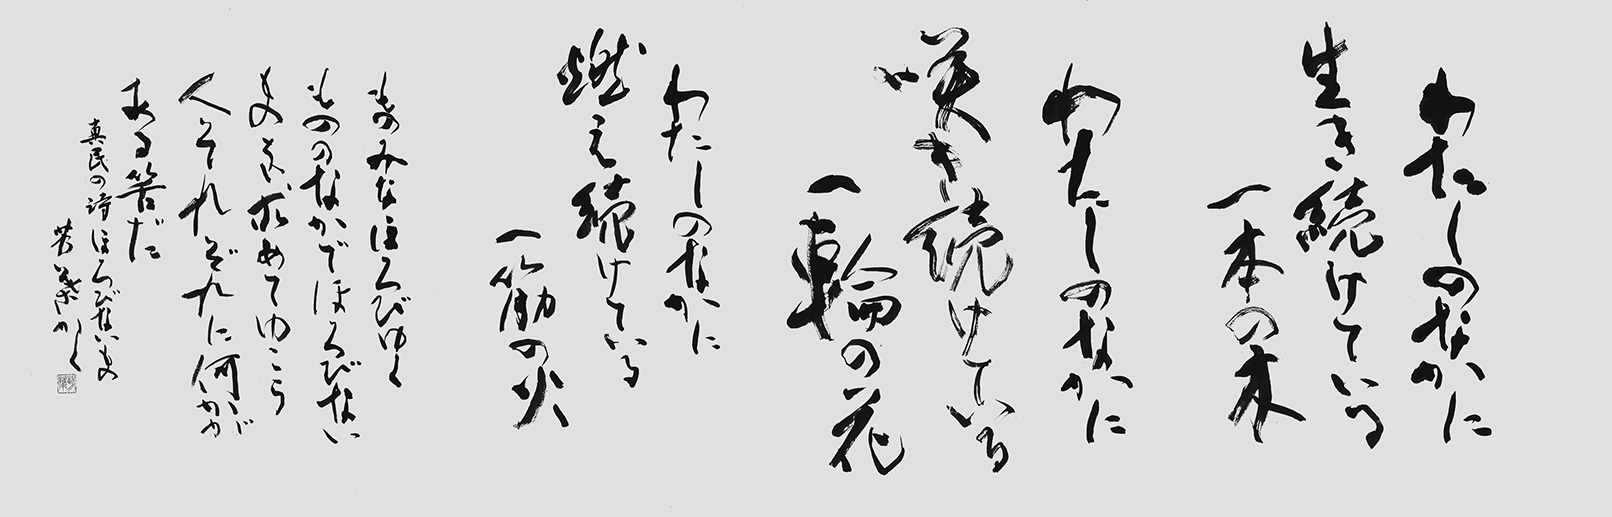 わたしのなかに
生き続けている
一本の木
わたしのなかに
咲き続けている
一輪の花
わたしのなかに
燃え続けている
一筋の火
ものみなほろびゆく
もののなかでほろびない
ものを求めてゆこう
人それぞれに何かが
ある筈だ
真民の詩 ほろびないもの
かく